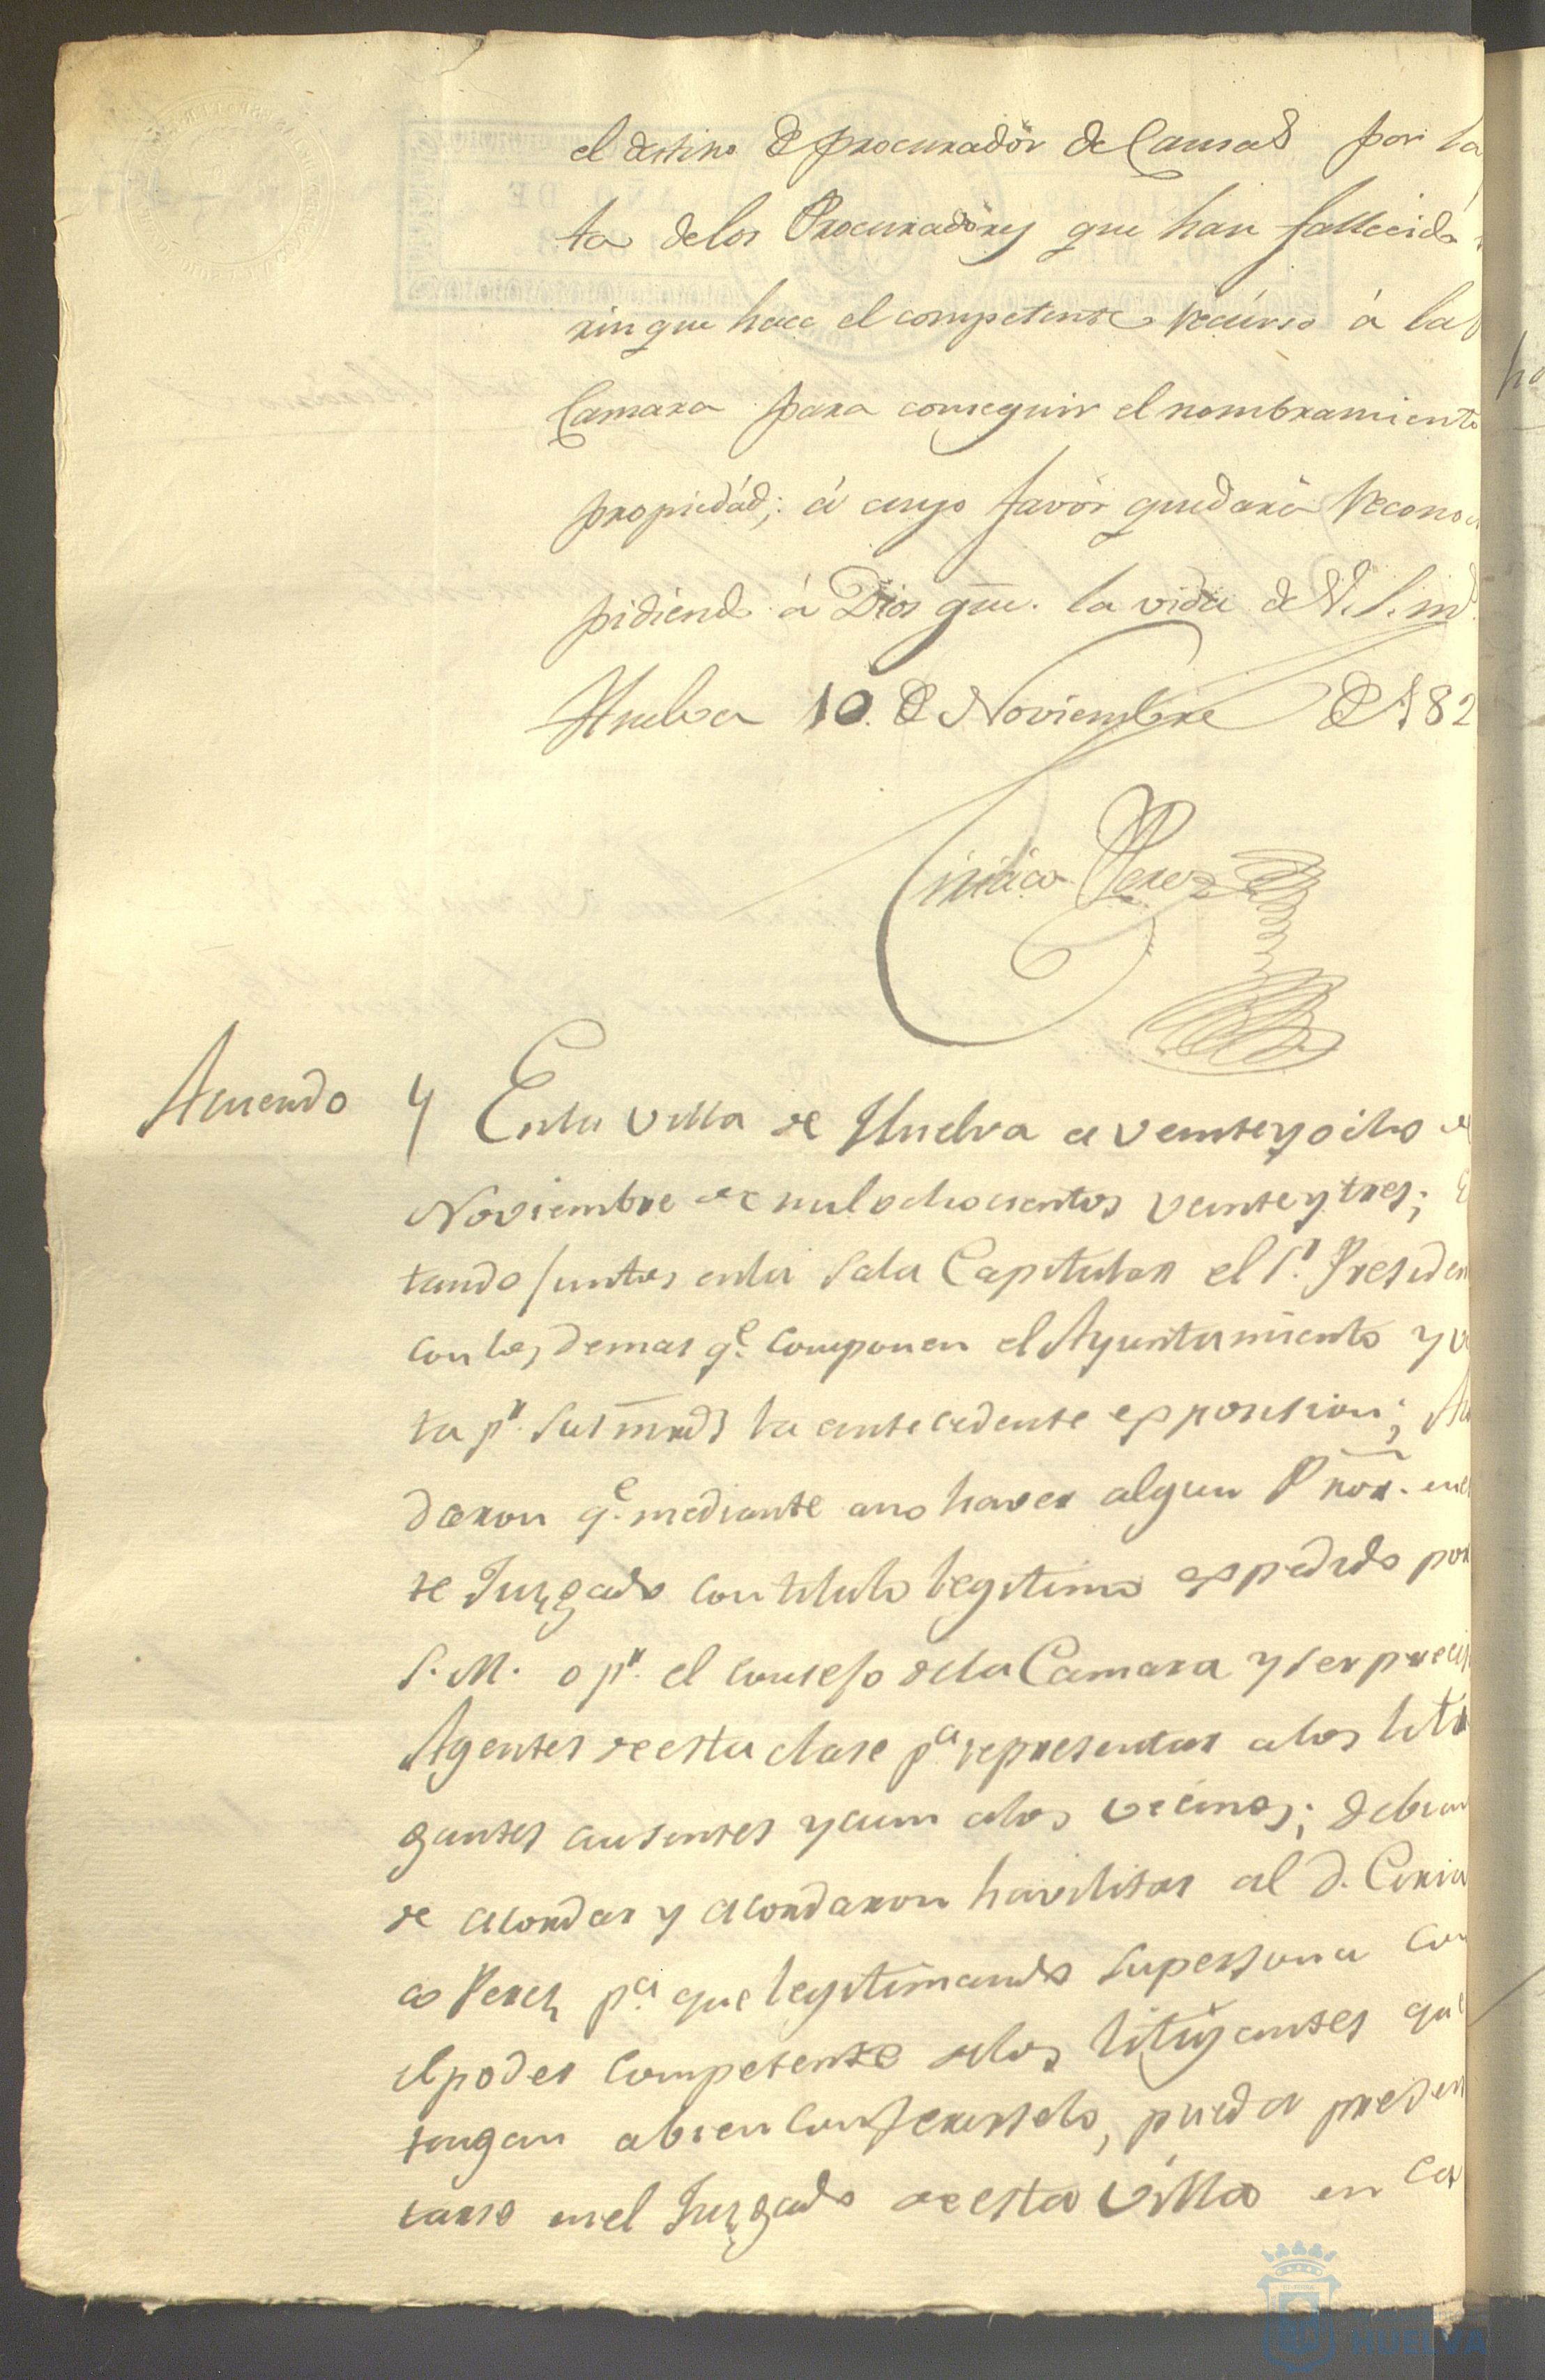 el destino de procurador de Causas por la
ta delos Procuradores que han fallecido
rin que hace el competente recúrso á la
Camara para conseguir el nombramiento
propiedád; á cuyo favór quedará recono
pidiendo á Dios gũe. la vida de V.S. m.ˢ
Huelva 10. de Noviembre de 182
Ciriaco Perez
Acuerdo
Enla Villa de Huelva a veinteyocho de
Noviembre de mil ochocientos veinteytres; E
tando juntos enla Sala Capitular el S.ʳ Presiden
con los demas q.ᵉ componen el Ayuntamiento y v
ta p.ʳ Sus mrds la antecedente exposision; Ac
daron q.ᵉ mediante ano haver algun Prior. en es
te Juzgado con titulo legitimo expedido por
S. M. o p.ʳ el consejo dela Camara y ser precis
Agentes de esta clase p.ᵃ representar alos liti
gantes ausentes y aun alos vecinos; debian
de acordar y acordaron havilitar al d. Ciria
co Perez p.ᵃ que legitimando supersona con
el poder competente delos litigantes que
tengan abien conferirselo, pueda presen
tarse en el Juzgado de esta Villa en ca
HUELVA